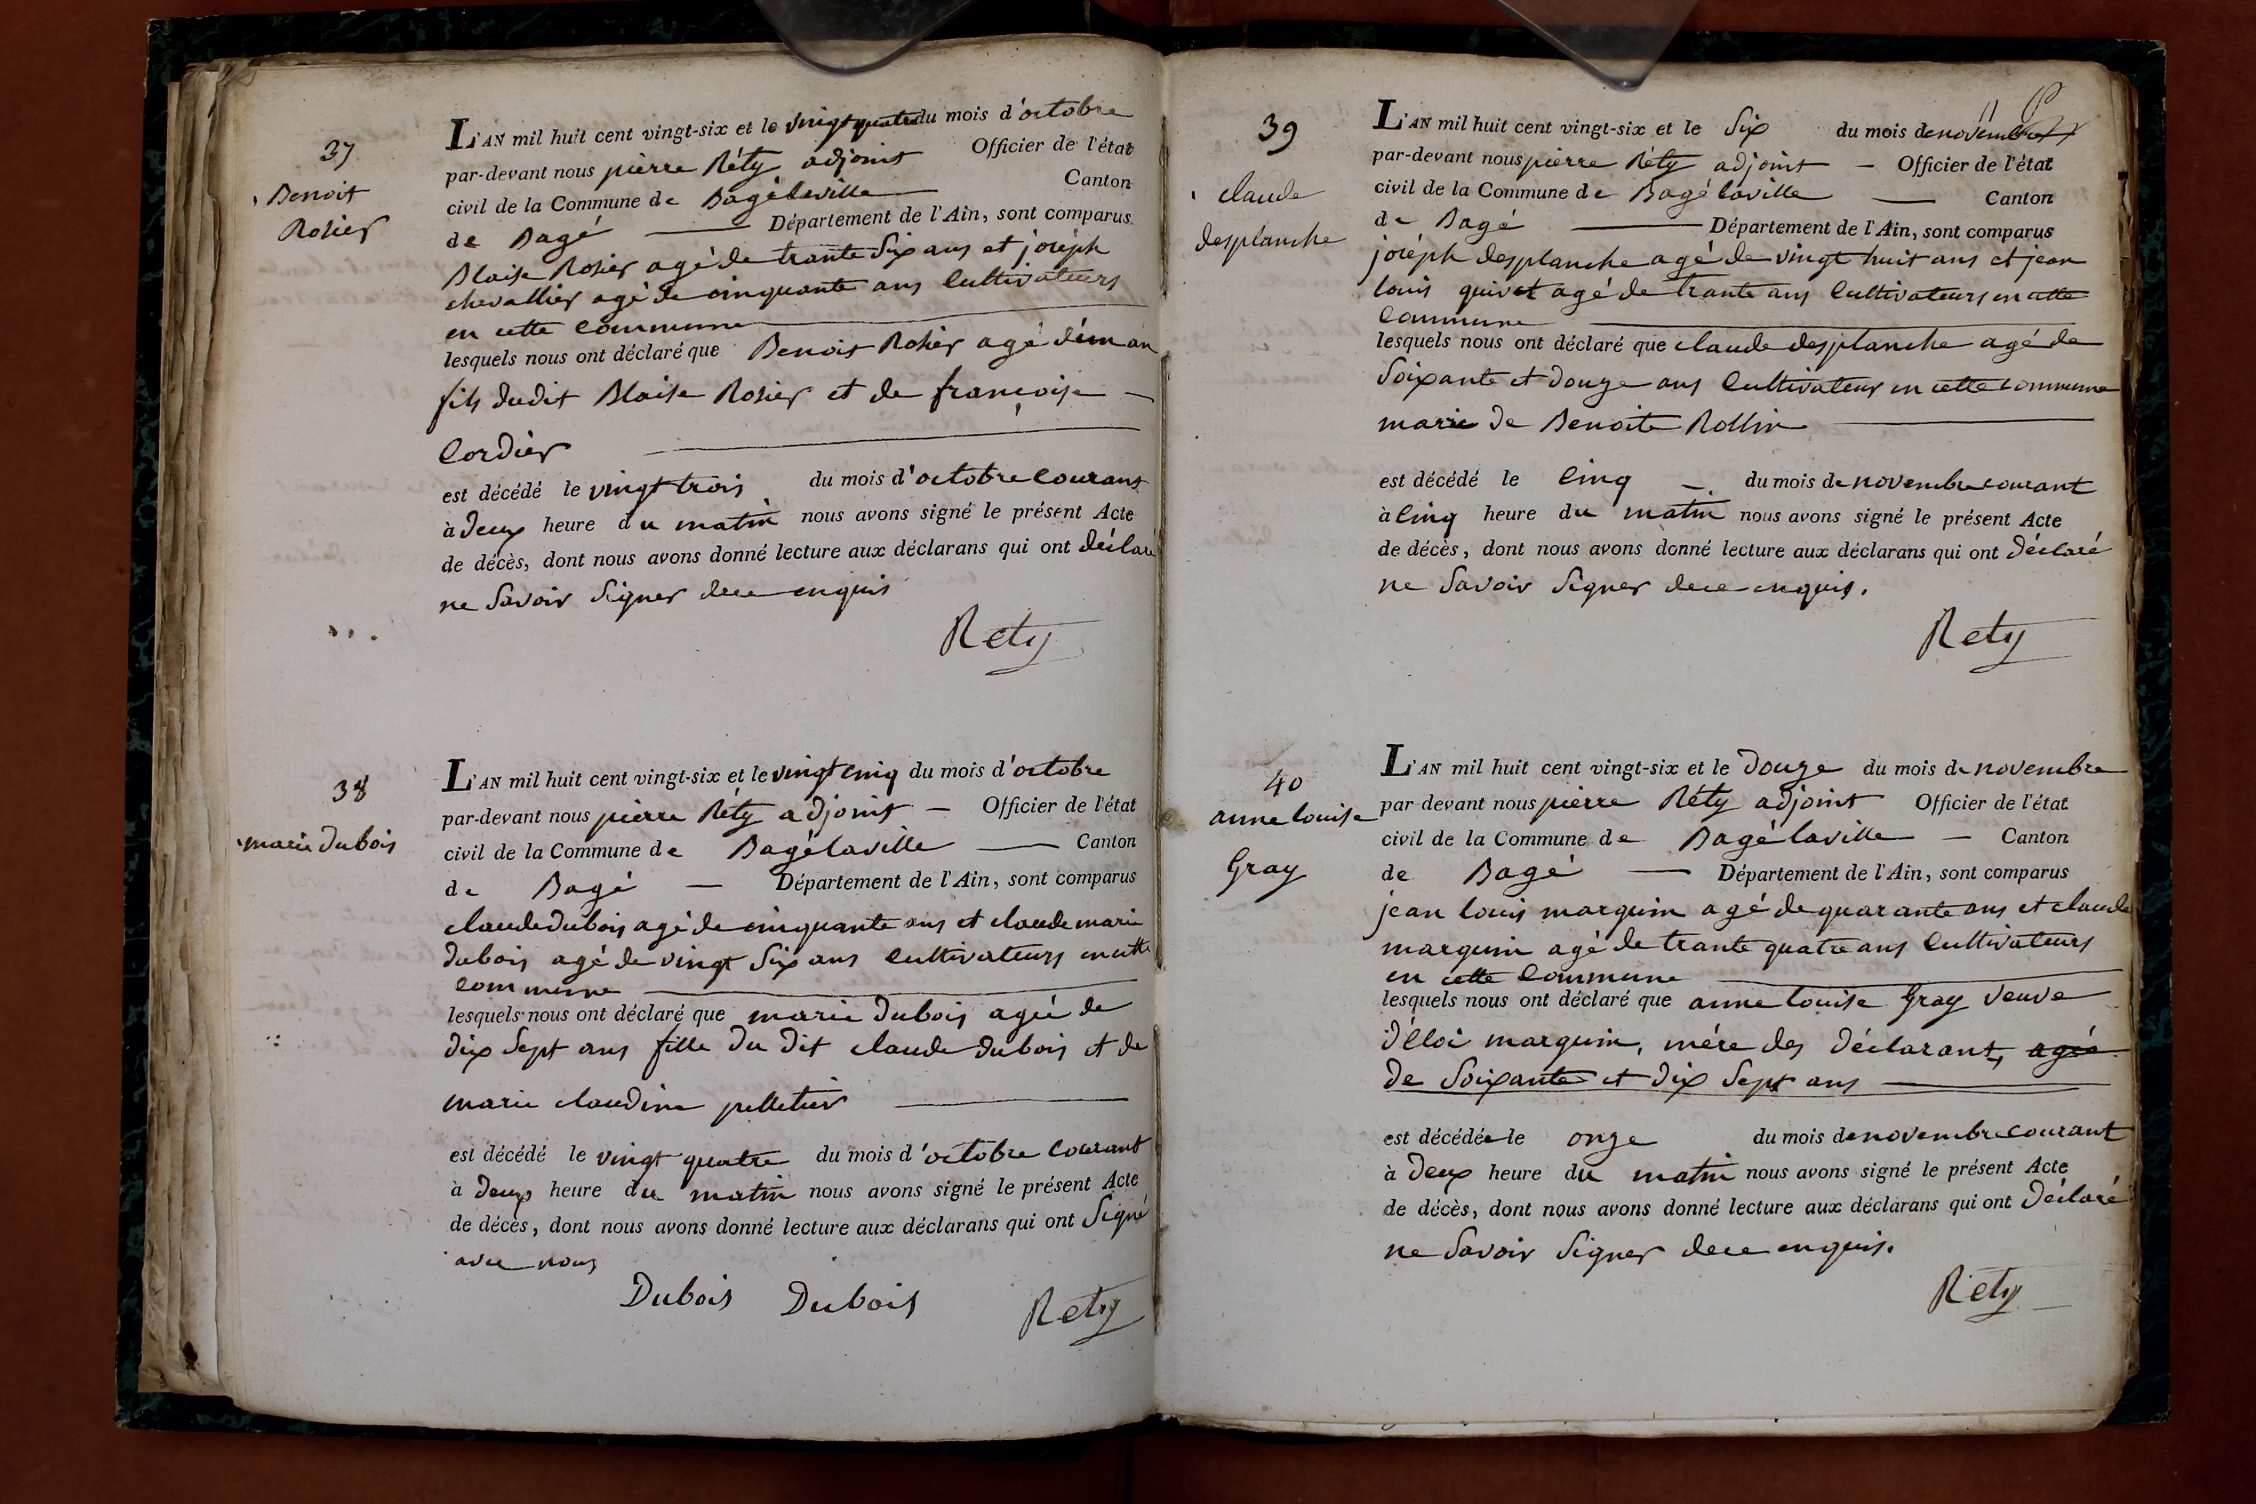 37
Benoit
Rosier
L'AN mil huit cent vingt-six et le vingt quatre du mois d'octobre
par-devant nous pierre Réty adjoint Officier de l'état
civil de la Commune de Bagélaville Canton
de Bagé — Département de l'Ain, sont comparus
Blaise Rosier agé de trante Six ans et joséph
chevallier agé de cinquante ans Cultivateurs
en cette Commune
lesquels nous ont déclaré que Benoit Rosier agé d'un an
fils dudit Blaise Rosier et de francoise —
Cordier
est décédé le vingt trois du mois d'octobre Courant
à deux heure du matin nous avons signé le présent Acte
de décès, dont nous avons donné lecture aux déclarans qui ont déclaré
ne Savoir Signer dece enquis
Rety
38
marie dubois
L'AN mil huit cent vingt-six et le vingt cinq du mois d'octobre
par-devant nous pierre Réty adjoint — Officier de l'état
civil de la Commune de Bagélaville — Canton
de Bagé — Département de l'Ain, sont comparus
claude dubois agé de cinquante ans et claude marie
dubois agé de vingt Six ans Cultivateurs en cette
Commune
lesquels nous ont déclaré que marie dubois agée de
dix Sept ans fille du dit claude dubois et de
marie claudine pelletier
est décédé le vingt quatre du mois d'octobre Courant
à deux heure du matin nous avons signé le présent Acte
de décès, dont nous avons donné lecture aux déclarans qui ont Signé
avec nous
Dubois Dubois Rety
39
claude
desplanche
L'AN mil huit cent vingt-six et le Six du mois de novembre
par-devant nous pierre Réty adjoint — Officier de l'état
civil de la Commune de Bagélaville — Canton
de Bagé — Département de l'Ain, sont comparus
joséph desplanche agé de vingt huit ans et jean
louis quivet agé de trante ans Cultivateurs en cette
Commune
lesquels nous ont déclaré que claude desplanche agé de
Soixante et douze ans Cultivateur en cette commune
marie de Benoite Rollin
est décédé le Cinq — du mois de novembre courant
à Cinq heure du matin nous avons signé le présent Acte
de décès, dont nous avons donné lecture aux déclarans qui ont déclaré
ne Savoir Signer dece enquis.
Rety
40
anne louise
Gray
L'AN mil huit cent vingt-six et le douze du mois de novembre
par devant nous pierre Réty adjoint Officier de l'état
civil de la Commune de Bagélaville — Canton
de Bagé — Département de l'Ain, sont comparus
jean louis marguin agé de quarante ans et claude
marguin agé de trante quatre ans Cultivateurs
en cette Commune
lesquels nous ont déclaré que anne louise Gray veuve
d'éloi marguin, mére des déclarants, agée
de Soixante et dix Sept ans
est décédée le onze du mois de novembre courant
à deux heure du matin nous avons signé le présent Acte
de décès, dont nous avons donné lecture aux déclarans qui ont déclaré
ne Savoir Signer dece enquis.
Rety